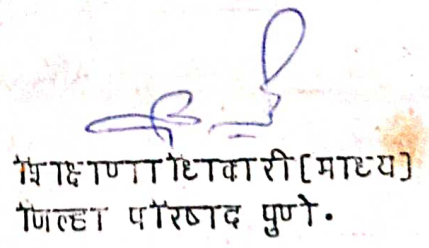 शिक्षणाधिकारी(माध्य)
जिल्हा परिषद पुणे.